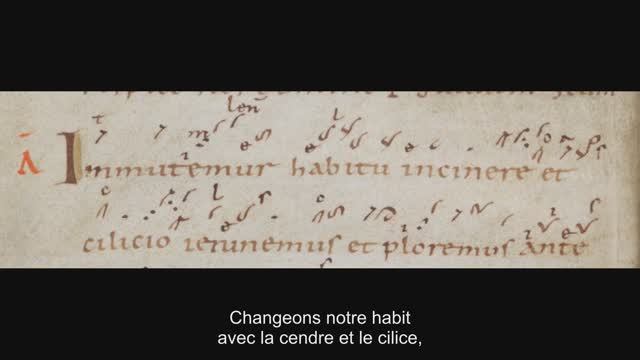 Immutemur habitu in cinere et
cilicio ieiunemus et ploremus ante
Changeons notre habit
avec la cendre et le cilice,